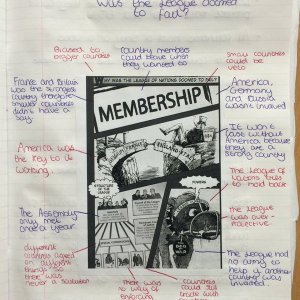 Was the League doomed
to fail?
Biased to
bigger countries
country members
could leave when
they wanted to
Small countries
could be
veto
France and Britain
was the strongest
country therefore
smaller countries
didn't have a
say.
America,
Germany
and Russia
wasn't involved
America was
the key to it
working.
It won't
last without
America because
they are a
strong country
The League of
Nations tries
to hold back
The Assembly
only met
once a year.
The League
was over-
protective.
different
countries agreed
on different
things so
there was
never a solution
There was
no way of
enforcing
countries
could still
trade with
The League had
no army to
help if another
country was
invaded.
WHY WAS THE LEAGUE OF NATIONS DOOMED TO FAIL?
MEMBERSHIP
STRUCTURE OF
POWERS